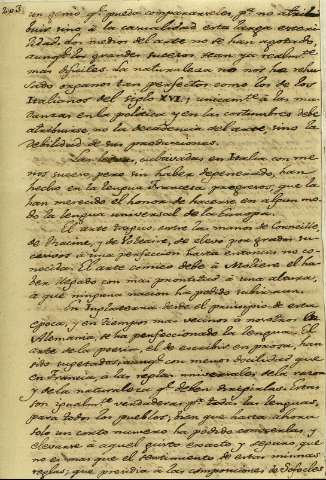 203.
un genio qe. pueda comparárseles, pr. no atri-
buir sino á la casualidad esta larga esteri-
lidad. Los medios del arte no se han agotado,
aunqe. los grandes sucesos sean ya realmte.
mas dificiles. La naturaleza no nos ha rehu-
sado organos tan perfectos como los de los
Italianos del Siglo XVI; unicamte. á las mu-
danzas en la politica y en las costumbres debe
atribuirse no la decadencia del arte, sino la
debilidad de sus producciones.
Las letras, cultivadas en Italia con me-
nos suceso, pero sin haber degenerado, han
hecho en la lengua Francesa progresos, que la
han merecido el honor de hacerse en algun mo-
do la lengua universal de la Europa.
El arte tragico, entre las manos de Corneille,
de Racine, y de Voltaire, se elevo por grados su-
cesivos á una perfeccion hasta entonces no co-
nocida. El arte comico debe á Moliere el ha-
ber llegado con mas prontitud á una altura,
á que ninguna nacion ha podido subir aun.
En Inglaterra desde el principio de esta
epoca, y en tiempo mas vecino á nosotros en
Alemania, se ha perfeccionado la lengua. El
arte de la poesia, el de escribir en prosa, han
sido sugetados, aunqe. con menos docilidad que
en Francia, á las reglas universales de la razon
y de la naturaleza qe. deben dirigirlas. Estas
son igualmte. verdaderas pa. todas las lenguas,
para todos los pueblos, bien que hasta ahora
solo un corto numero ha podido conocerlas, y
elevarse á aquel gusto exacto, y seguro, que
no es mas que el sentimiento de estas mismas
reglas, que presidia á las composiciones de Sofocles